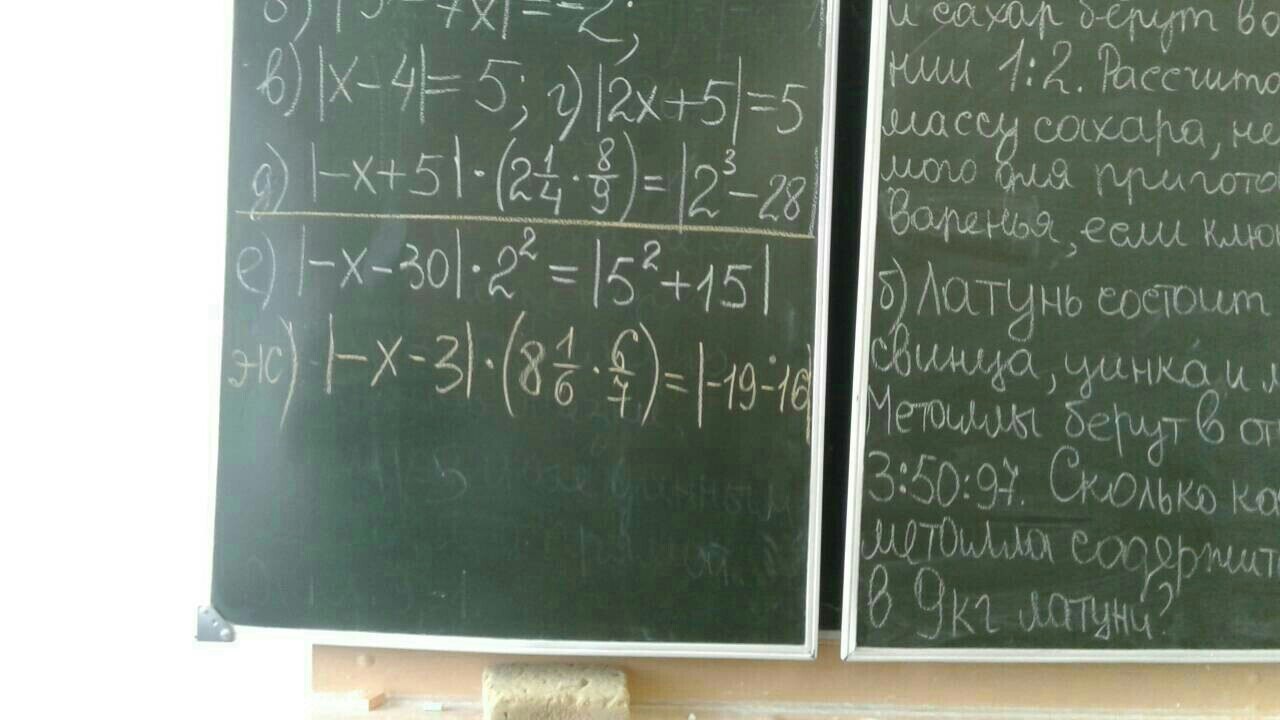 б) |3 - 7x| = -2;
в) |x - 4| = 5; г) |2x + 5| = 5
д) |-x + 5| · (2 1/4 · 8/9) = |2³ - 28
е) |-x - 30| · 2² = |5² + 15|
ж) |-x - 3| · (8 1/6 · 6/7) = |-19 - 16|
и сахар берут в
нии 1:2.
массу сахара, не
мого для пригото
варенья, если клю
б) Латунь состоит
свинца, цинка и м
Металлы берут в от
3:50:97. Сколько ка
металла содержит
в 9кг латуни?